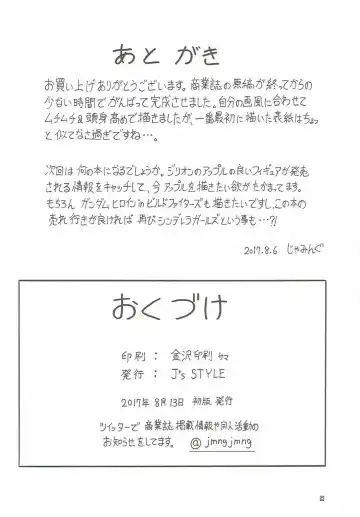 あとがき
お買い上げありがとうございます。商業誌の原稿が終ってからの
少ない時間でがんばって完成させました。自分の画風に合わせて
ムチムチ&頭身高めで描きましたが、一番最初に描いた表紙はちょっ
と似てなさ過ぎですね…。
次回は何の本になるでしょうか。ジリオンのアップルの良いフィギュアが発売
される情報をキャッチして、今アップルを描きたい欲がたかまってます。
もちろん ガンダムヒロインinビルドファイターズも描きたいですし、この本の
売れ行きが良ければ 再びシンデレラガールズという事も…?!
2017.8.6 じゃみんぐ
おくづけ
印刷: 金沢印刷サマ
発行: J's STYLE
2017年8月13日 初版発行
ツイッターで 商業誌掲載情報や同人活動の
お知らせをしてます。 @jmngjmng